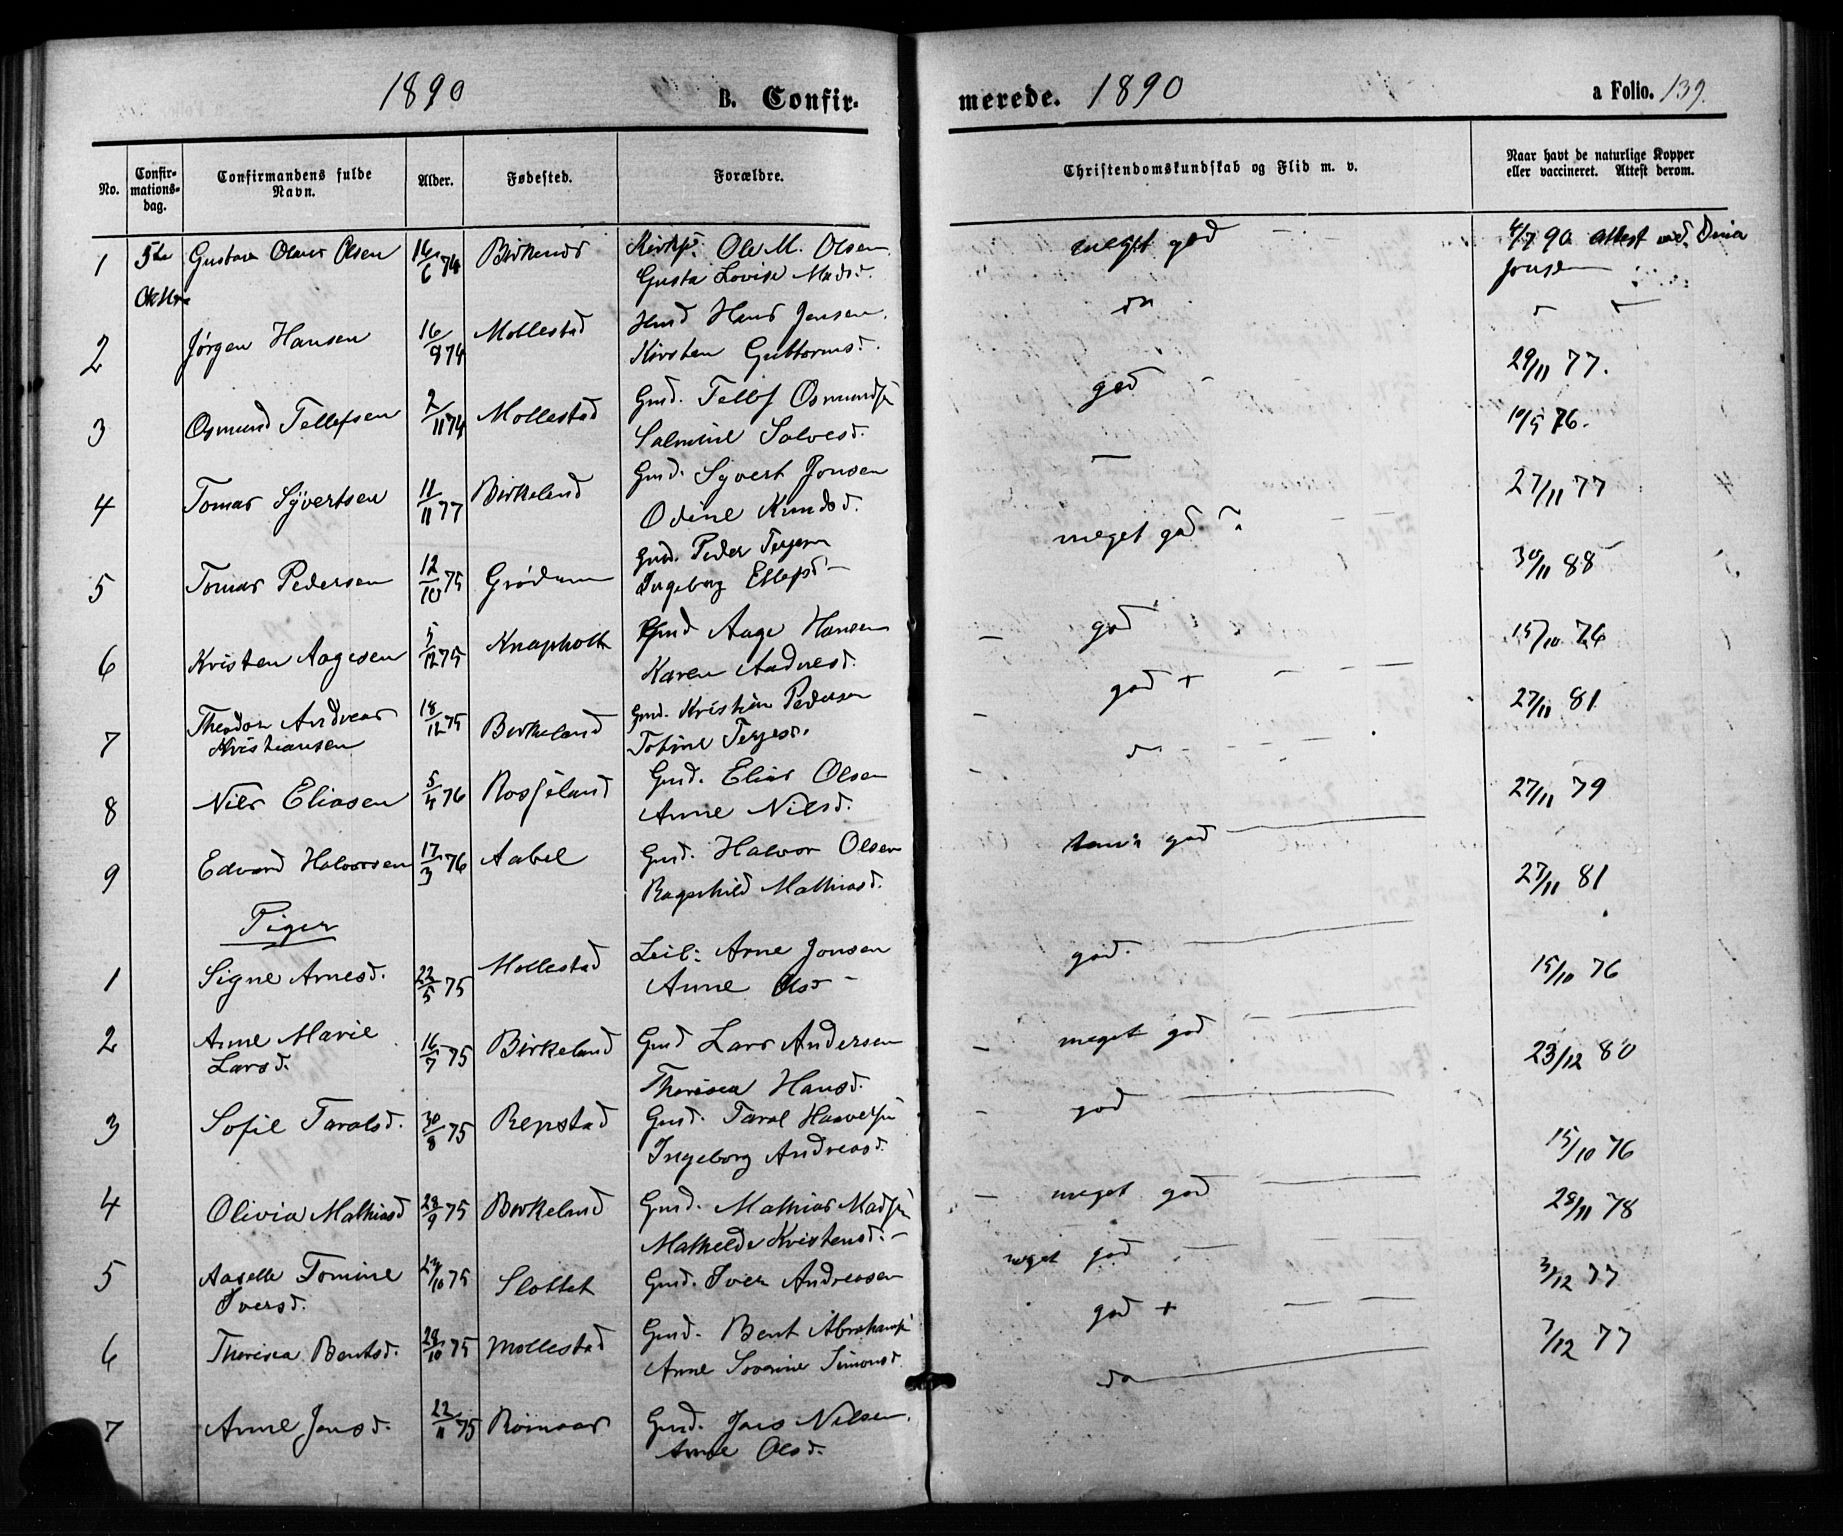 1890 B. Confir-
merede. 1890 a Folio. 139.
No. Confir-mations-dag. Confirmandens fulde Navn. Alder. Fødested. Forældre. Christendomskundskab og Flid m. v. Naar havt de naturlige Kopper eller vaccineret. Attest derom.
1 5te Gustav Olsen 16/6 74 Birkenes Ole M. Olsen meget god 4/7 90 attest ved Dina
Oktbr Gusta Lovise Madsd. Jensen
2 Jørgen Hansen 16/9 74 Mollestad Hans Jensen do
Kirsten Guttormsd. 29/11 77.
3 Osmund Tellefsen 2/11 74 Mollestad Gmd. Tellef Osmunds. god
Salmine Salvesd. 10/5 76.
4 Tomas Syvertsen 11/11 77 Birkeland Gmd. Syvert Jonsen —
Odine Knudsd. 27/11 77
5 Tomas Pedersen 12/10 75 Grødum Gmd. Peder Terjesen meget god
Ingeborg Ellefsd. 30/11 88
6 Kristen Aagesen 5/12 75 Knapholt Gmd Aage Hansen god
Karen Andresd. 15/10 76
7 Theodor Andreas 18/12 75 Birkeland Gmd. Kristian Pedersen god +
Kristiansen Terjesd. 27/11 81
8 Nils Eliasen 5/4 76 Rosseland Gmd. Elias Olsen do
Anne Nilsd. 27/11 79
9 Edvard Halvorsen 17/3 76 Aabel Gmd. Halvor Olsen god
Ragnhild Mathiasd. 27/11 81
Piger
1 Signe Arnesd. 22/5 75 Mollestad Leil: Arne Jonsen god.
Anne Olsd 15/10 76
2 Anne Marie 16/7 75 Birkeland Gmd Lars Andersen meget god
Larsd. Theresea Hansd. 23/12 80
3 Sofie Taralsd. 30/8 75 Repstad Gmd. Taral god
Ingeborg Andreasd. 15/10 76
4 Olivia Mathiasd 28/9 75 Birkeland Gmd. Mathias Mads. meget god 28/11 78
Mathilde Kristensd.
5 Tomine 10 75 Slottet Gmd. Iver Andreasen meget god 3/12 77
Iversd.
6 Theresea Bentsd. 28/10 75 Mollestad Gmd. Bent Abrahams. god + 7/12 77
Anne Simonsd
7 Anne Jensd. 22/11 75 Gmd. Jens Nilsen. do
Anne Olsd.